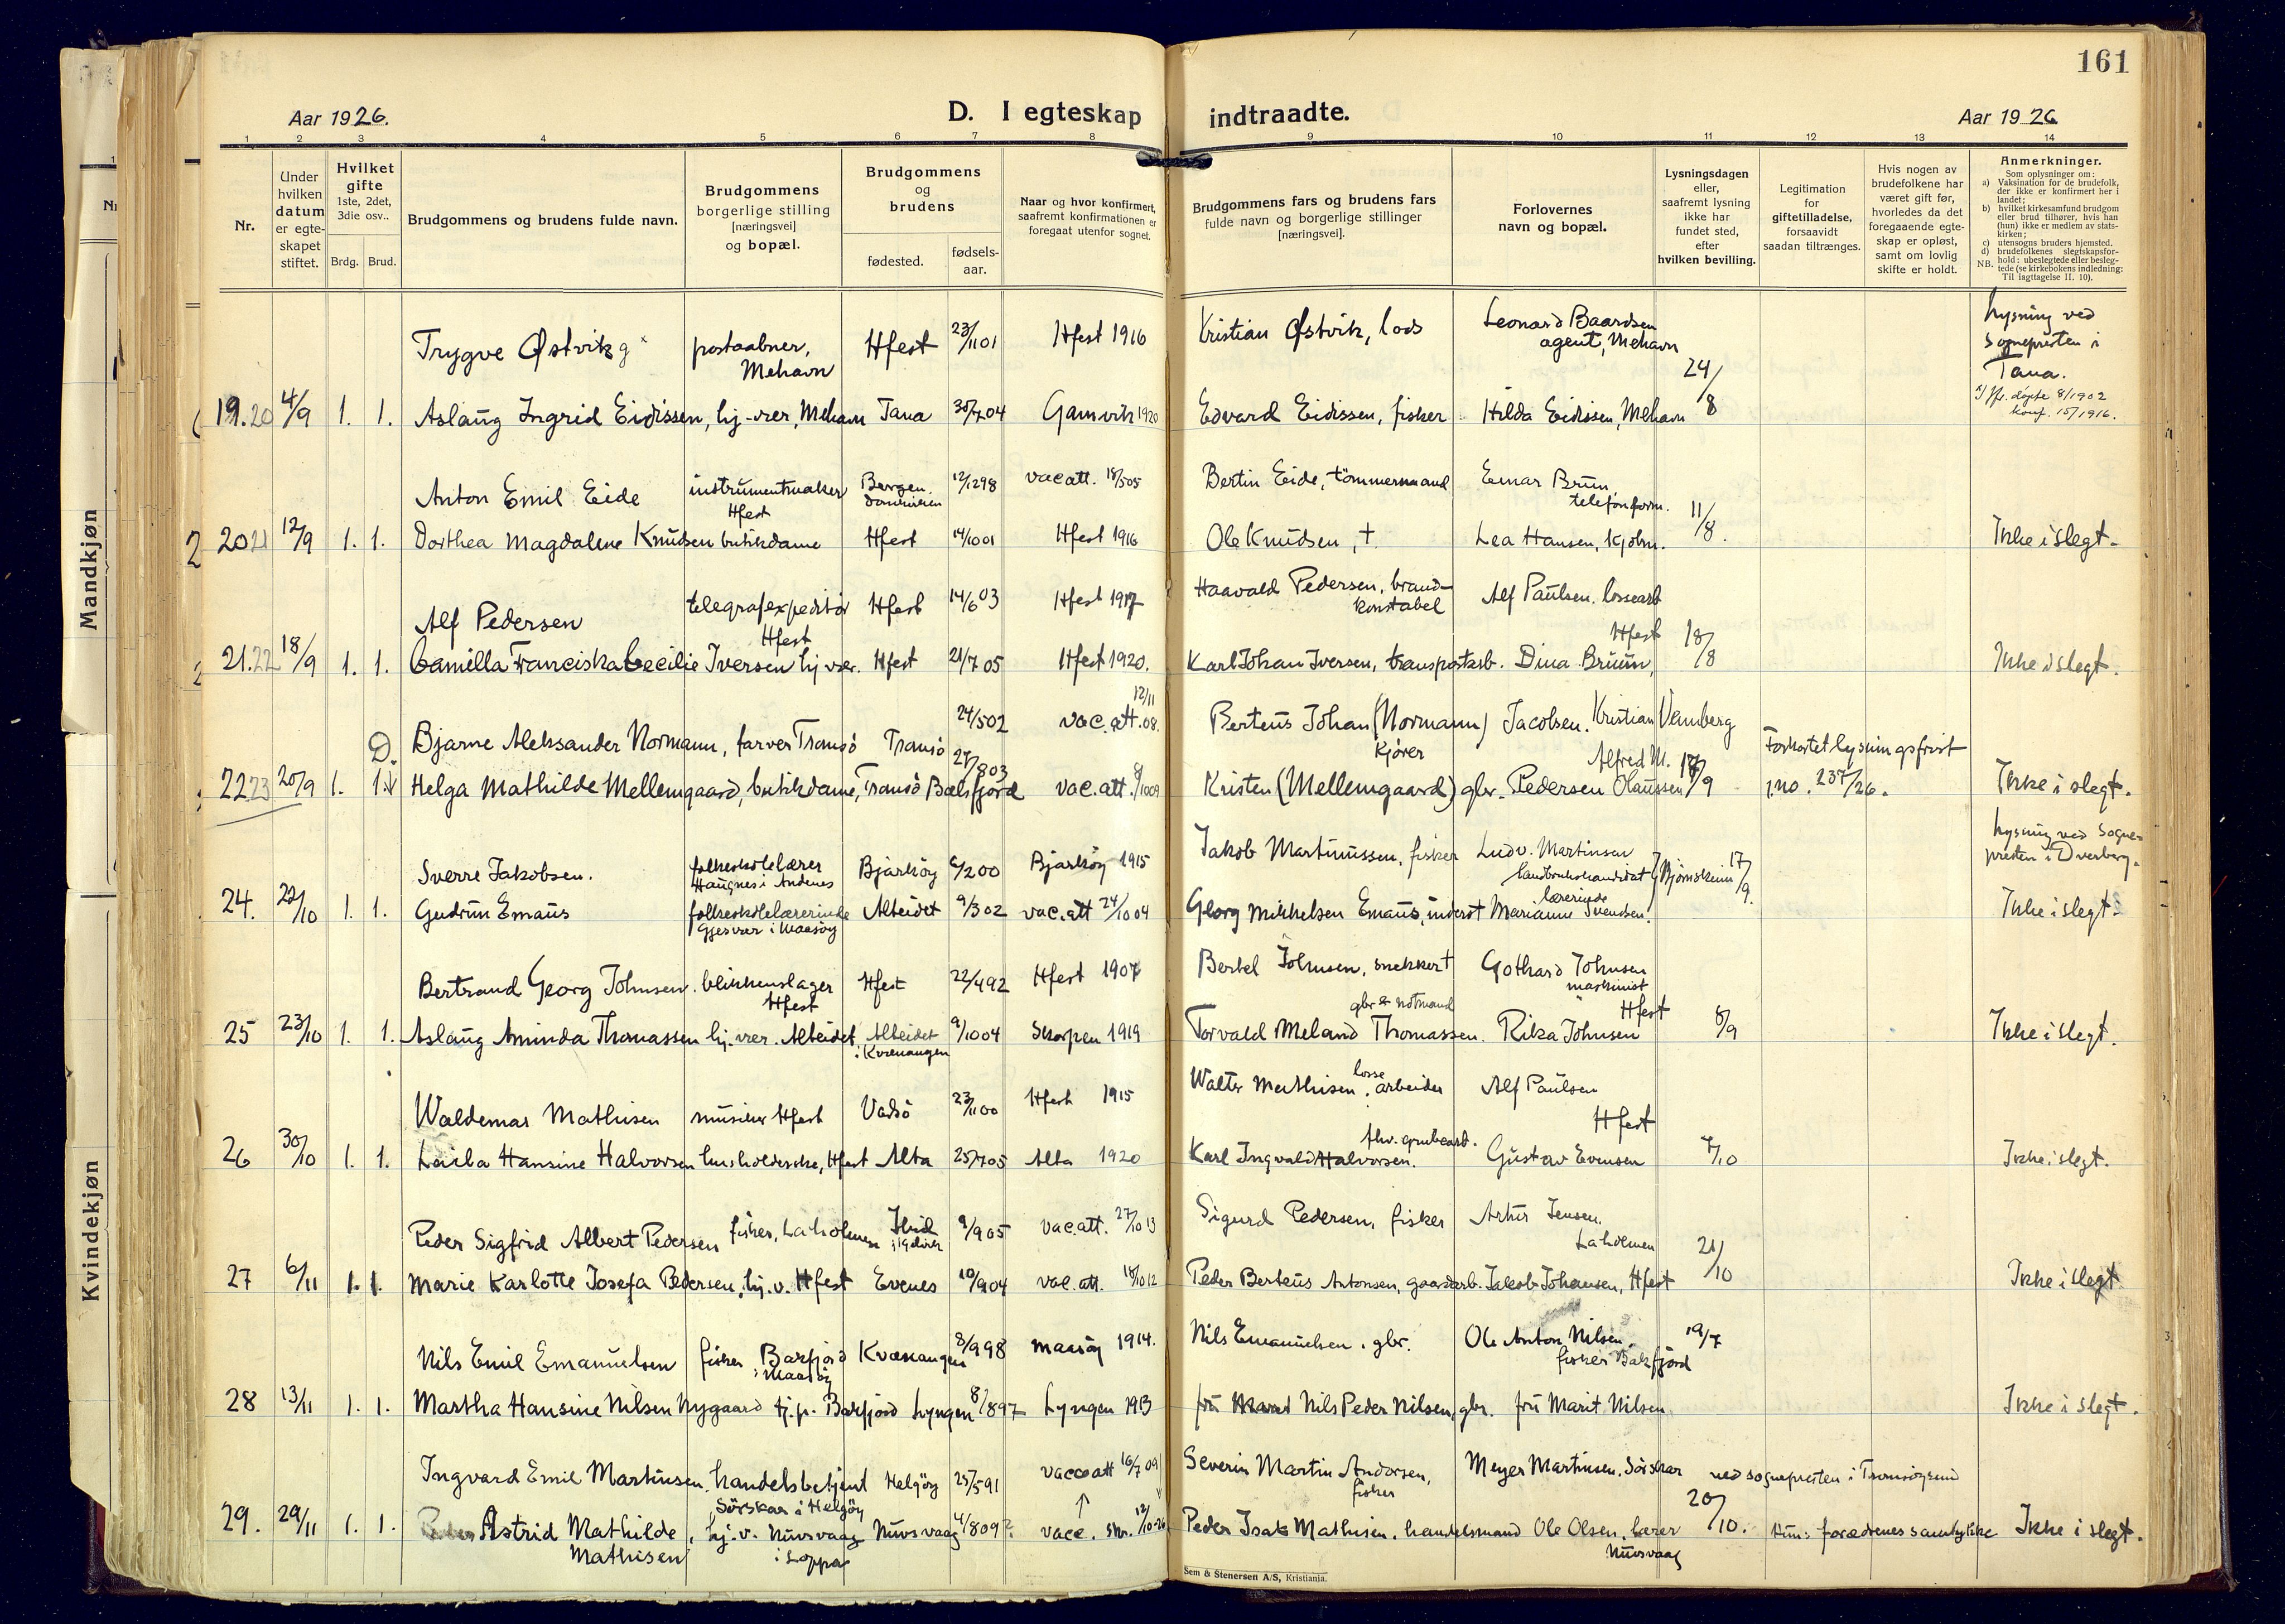 161
Aar 1926.
D. I egteskap indtraadte.
Aar 1926
1 2 3 4 5 6 7 8 9 10 11 12 13 14
Nr.
Under hvilken datum er egteskapet stiftet.
Hvilket gifte 1ste, 2det, 3die osv..
Brdg. Brud.
Brudgommens og brudens fulde navn.
Brudgommens borgerlige stilling [næringsvei] og bopæl.
Brudgommens og brudens
fødested.
fødsels-aar.
Naar og hvor konfirmert, saafremt konfirmationen er foregaat utenfor sognet.
Brudgommens fars og brudens fars fulde navn og borgerlige stillinger [næringsvei].
Forlovernes navn og bopæl.
Lysningsdagen eller, saafremt lysning ikke har fundet sted, efter hvilken bevilling.
Legitimation for giftetilladelse, forsaavidt saadan tiltrænges.
Hvis nogen av brudefolkene har været gift før, hvorledes da det foregaaende egteskap er opløst, samt om lovlig skifte er holdt.
Anmerkninger.
Som oplysninger om:
a) Vaksination for de brudefolk, der ikke er konfirmert her i landet;
b) hvilket kirkesamfund brudgom eller brud tilhører, hvis han (hun) ikke er medlem av statskirken;
c) utensogns bruders hjemsted.
d) brudefolkenes slegtskapsforhold: ubeslegtede eller beslegtede (se kirkebokens indledning:
NB. Til iagttagelse II. 10).
Mandkjøn
Kvindekjøn
Trygve Østvik postaabner, Mehavn Hfest 23/11 01 Hfest 1916 Kristian Østvik, lods Leonard Baardsen agent, Mehavn Lysning ved sognepresten i Tana.
19.20 4/9 1. 1. Aslaug Ingrid Eidissen, hj.vær, Mehavn Tana 30/7 04 Gamvik 1920 Edvard Eidissen, fisker Hilda Eidissen, Mehavn 24/8 døpte 8/1902 konf. 15/1916.
Anton Emil Eide instrumentmaker Hfest Bergen Domkirken 12/12 98 vac att. 18/5 05 Bertin Eide, tömmermand Einar Bruun, telefonform.
20 21 12/9 1. 1. Dorthea Magdalene Knudsen butikdame Hfest 14/10 01 Hfest 1916 Ole Knudsen, † Lea Hansen, kjolm. 11/8. Ikke i slegt.
Alf Pedersen telegrafexpeditør Hfest Hfest 14/6 03 Hfest 1917 Haavald Pedersen, brandkonstabel Alf Paulsen, lossearb Hfest
21.22 18/9 1. 1. Camilla Franciska Cecilie Iversen hj vær. Hfest 21/7 05 Hfest 1920. Karl Johan Iversen, transportarb. Dina Bruun, 18/8 Ikke i slegt.
D. Bjarne Aleksander Normann, farver Tromsö Tromsö 24/5 02 vac.att. 12/11 08. Berteus Johan (Normann) Jacobsen. Kjörer Kristian Vemberg
22 23 20/9 1. 1. Helga Mathilde Mellemgaard, butikdame, Tromsö Balsfjord 27/8 03 vac.att. 8/10 09 Kristen (Mellemgaard) gbr. Pedersen Alfred M. Olaussen 17/9 Forkortet lysningsfrist j.no. 237/26. Ikke i slegt.
Sverre Jakobsen. folkeskolelærer Haugnes i Andenes Bjarköy 6/2 00 Bjarköy 1915 Jakob Martinussen, fisker Ludv. Martinsen landbrukskandidat Bjørnskinn Lysning ved sognepresten i Dverberg.
24. 22/10 1. 1. Gudrun Emaus folkeskolelærerinde Gjesvær i Maasöy Alteidet 9/3 02 vac.att 24/10 04 Georg Mikkelsen Emaus, inderst lærerinde Marianne Svendsen. 17/9. Ikke i slegt.
Bertrand Georg Johnsen. blikkenslager Hfest Hfest 22/4 92 Hfest 1907 Bertel Johnsen, snekker † Gothard Johnsen maskinist Hfest
25 23/10 1. 1. Aslaug Aminda Thomassen hj. vær. Alteidet, Alteidet i Kvænangen 9/10 04 Skorpen 1919 Torvald Meland Thomassen. gbr & notmand Rika Johnsen 8/9 Ikke i slegt.
Waldemar Mathisen musiker Hfest Vadsö 23/11 00 Hfest 1915 Walter Mathisen. losse arbeider Alf Paulsen Hfest
26 30/10 1. 1. Laila Hansine Halvorsen husholderske, Hfest Alta 25/7 05 Alta 1920 Karl Ingvald Halvorsen. fhv. grubearb. Gustav Evensen 7/10 Ikke i slegt.
Peder Sigfrid Albert Pedersen fisker, Laholmen 9/9 05 vac.att. 27/10 13 Sigurd Pedersen, fisker Artur Jensen, Laholmen
27 6/11 1. 1. Marie Karlotte Josefa Pedersen, hj.v. Hfest Evenes 10/9 04 vac.att. 18/10 12 Peder Berteus Antonsen, gaardarb. Jakob Johansen, Hfest 21/10 Ikke i slegt
Nils Emil Emanuelsen fisker Barfjord i Maasöy Kvænangen 8/9 98 Maasöy 1914. Nils Emanuelsen, gbr. Ole Anton Nilsen, fisker Bakfjord 19/7
28 13/11 1. 1. Martha Hansine Nilsen Nygaard tj.p. Barfjord Lyngen 8/8 97 Lyngen 1913 Nils Peder Nilsen, gbr. fru Marit Nilsen Ikke i slegt.
Ingvard Emil Martinsen, handelsbetjent Sörskar i Helgöy Helgöy 25/5 91 vacc att 16/7 09 Severin Martin Andorsen, fisker Meyer Martinsen, Sörskar ved sognepresten i Tromsøysund
29. 29/11 1. 1. Astrid Mathilde Mathisen, hj.v. Nuvsvaag i Loppa Nuvsvaag 4/8 09? vacc. skr. 12/10-26 Peder Isak Mathisen, handelsmand Ole Olsen, lærer Nuvsvaag 20/10. Hun: forældrenes samtykke Ikke i slegt.
Sem & Stenersen A/S, Kristiania.